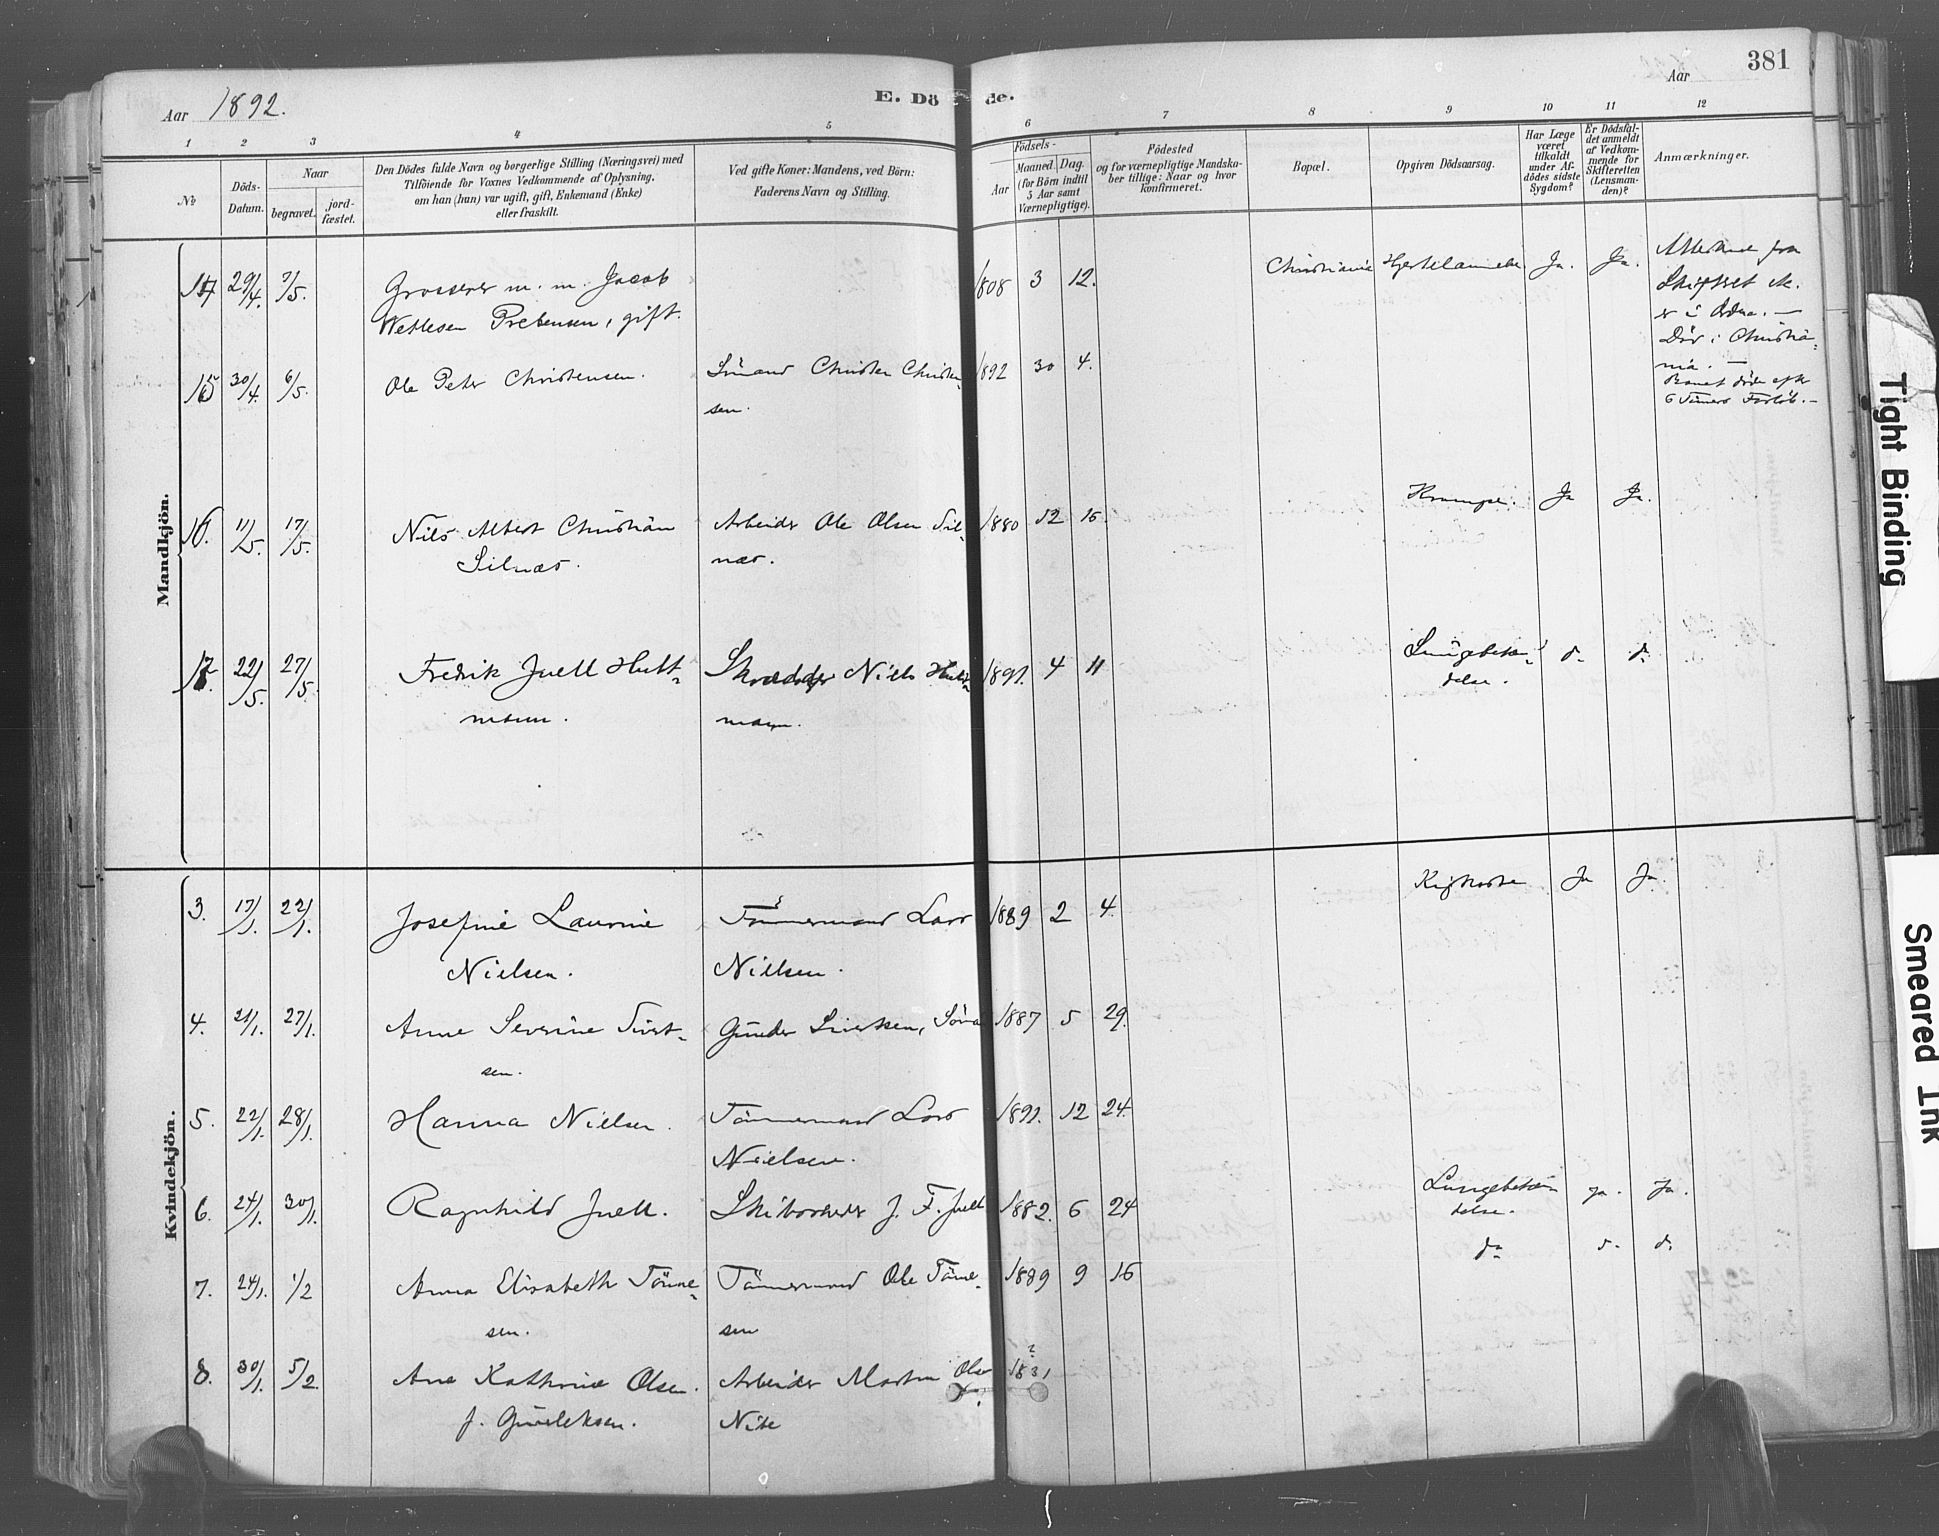 381
Aar 1892.
E. Dö de.
Aar
1 2 3 4 5 6 7 8 9 10 11 12
№
Döds-
Datum.
Naar
begravet.
jord-
fæstet.
Den Dödes fulde Navn og borgerlige Stilling (Næringsvei) med
Tilföiende for Voxnes Vedkommende af Oplysning,
om han (hun) var ugift, gift, Enkemand (Enke)
eller fraskilt.
Ved gifte Koner: Mandens, ved Börn:
Faderens Navn og Stilling.
Födsels-
Aar
Maaned. Dag.
(for Börn indtil
5 Aar samt
Værnepligtige).
Födested
og for værnepligtige Mandska-
ber tillige: Naar og hvor
konfirmeret.
Bopæl.
Opgiven Dödsaarsag.
Har Læge
været
tilkaldt
under Af-
dödes sidste
Sygdom?
Er Dödsfal-
det anmeldt
af Vedkom-
mende for
Skifteretten
(Lensman-
den)?
Anmærkninger.
Mandkjön.
29/4. 7/5. Grosserer m. m. Jacob 1808 3 12. Christiania Ja. Ja.
Wetlesen Prebensen, gift.
Skiftret
er i Orden. —
Död i Christia-
nia. —
15 30/4. 6/5. Ole Peter Christensen. Sömand Christen Christen- 1892 30 4.
sen.
Barnet döde efter
6 Timers Forlöb. —
16. 11/5. 17/5. Nils Albert Christian Arbeider Ole Olsen Sil- 1880 12 15. Krampe. Ja Ja.
Silnæs. næs.
17. 22/5. 27/5. Fredrik Juell Hutt- Skrædder Niels Hutt- 1891. 4 11 Lungebetæn- d. d.
mann. mann. delse.
Kvindekjön.
3. 17/1. 22/1. Josefine Laurine Tömmermand Lars 1889 2 4. Kighoste Ja Ja.
Nielsen. Nielsen.
4. 21/1. 27/1. Anne Severine Sivert- Gunder Sivertsen, Söma 1887 5 29.
sen.
5. 22/1. 28/1. Hanna Nielsen. Tömmermand Lars 1891. 12 24.
Nielsen.
6. 24/1. 30/1. Ragnhild Juell. Skibsreder J. F. Juell 1882. 6 24 Lungebetæn- ja. Ja.
delse.
7. 24/1. 1/2 Anna Elisabeth Tönne- Tömmermand Ole Tönne- 1889 9 16 do d. d.
sen. sen
8. 30/1. 5/2. Ane Kathrine Olsen. Arbeider Martin Olsen 1831 ?
f. Gundersen.
Tight Binding
Smeared Ink